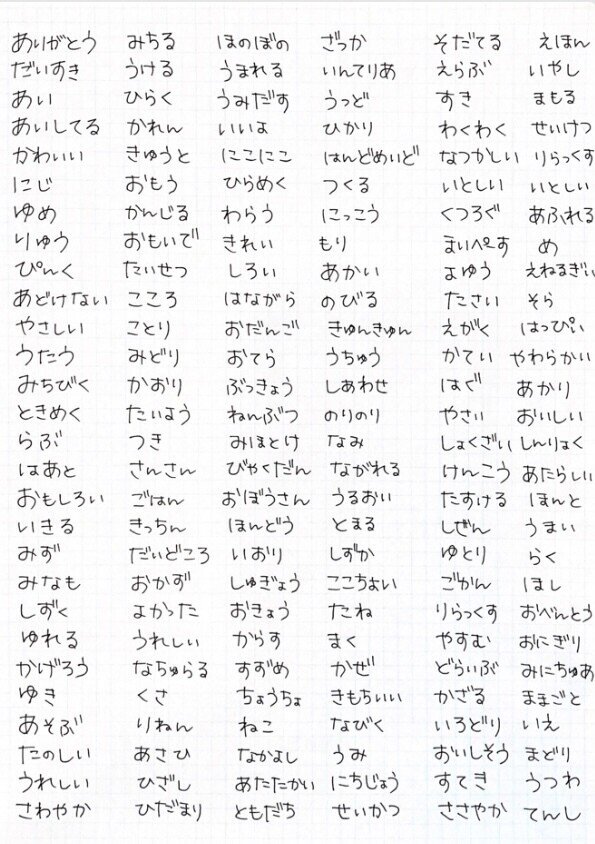 ありがとう みちる ほのぼの ざっか そだてる えほん
だいすき うける うまれる いんてりあ えらぶ いやし
あい ひらく うみだす うっど すき まもる
あいしてる かれん いいよ ひかり わくわく せいけつ
かわいい きゅうと にこにこ はんどめいど なつかしい りらっくす
にじ おもう ひらめく つくる いとしい いとしい
ゆめ かんじる わらう にっこう くつろぐ あふれる
りゅう おもいで きれい もり まいぺーす め
ぴんく たいせつ しろい あかい よゆう えねるぎい
あどけない こころ はながら のびる たさい そら
やさしい ことり おだんご きゅんきゅん えがく はっぴい
うたう みどり おてら うちゅう かてい やわらかい
みちびく かおり ぶっきょう しあわせ はぐ あかり
ときめく たいよう ねんぶつ のりのり やさい おいしい
らぶ つき みほとけ なみ しょくざい しんりょく
はあと さんさん びゃくだん ながれる けんこう あたらしい
おもしろい ごはん おぼうさん うるおい たすける ほんと
いきる きっちん ほんどう とまる しぜん うまい
みず だいどころ いおり しずか ゆとり らく
みなも おかず しゅぎょう ここちよい ごかん ほし
しずく よかった おきょう たね りらっくす おべんとう
ゆれる うれしい からす まく やすむ おにぎり
かげろう なちゅらる すずめ かぜ どらいぶ みにちゅあ
ゆき くさ ちょうちょ きもちいい かざる ままごと
あそぶ りねん ねこ なびく いろどり いえ
たのしい あさひ なかよし うみ おいしそう まどり
うれしい ひざし あたたかい にちじょう すてき うつわ
さわやか ひだまり ともだち せいかつ ささやか てんし